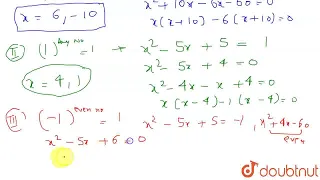 x² + 10x - 6x - 60 = 0
x = 6, -10
x(x+10) - 6(x+10) = 0
II (1)^Any no = 1 → x² - 5x + 5 = 1
x = 4, 1
x² - 5x + 4 = 0
x² - 4x - x + 4 = 0
x(x-4) - 1(x-4) = 0
III (-1)^even no = 1 x² - 5x + 5 = -1, x² + 4x - 60
even
x² - 5x + 6 = 0
doubtnut